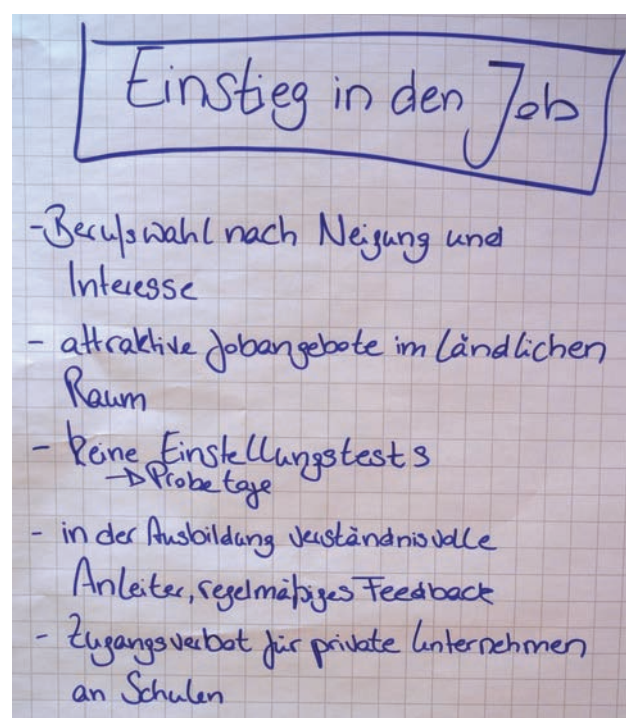 Einstieg in den Job
- Berufswahl nach Neigung und
Interesse
- attraktive Jobangebote im ländlichen
Raum
- keine Einstellungstests
→ Probetage
- in der Ausbildung verständnisvolle
Anleiter, regelmäßiges Feedback
- Zugangsverbot für private Unternehmen
an Schulen